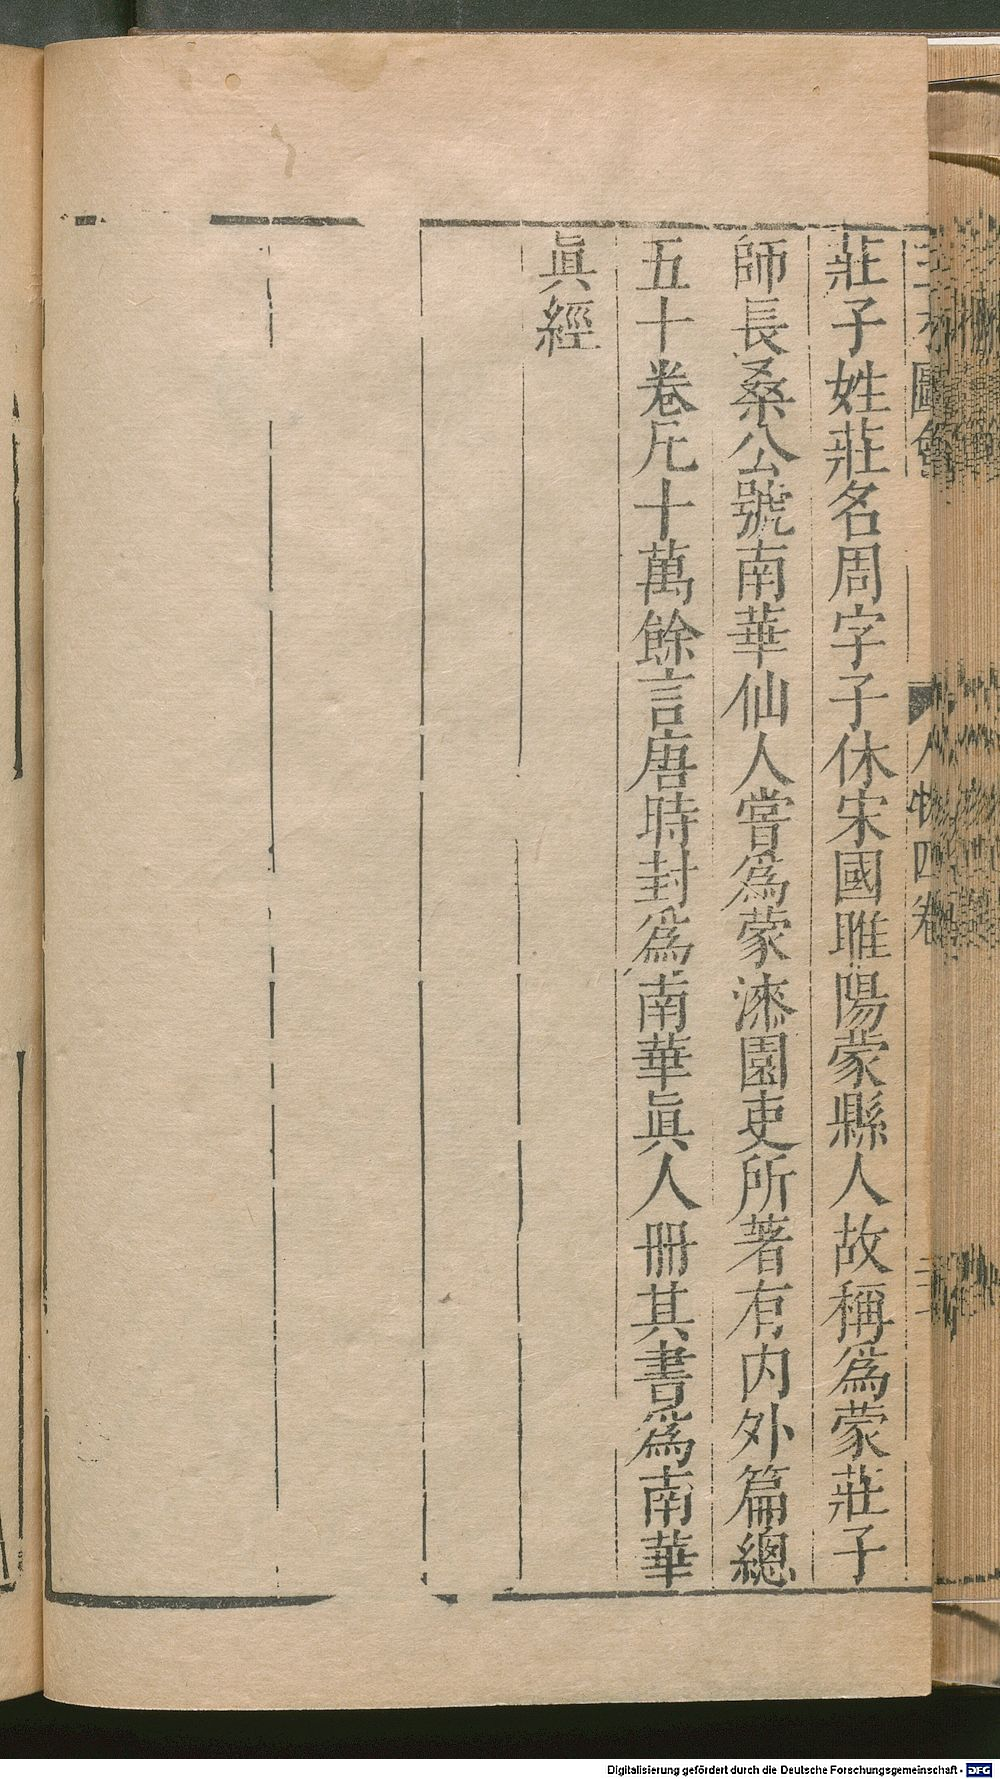 三才圖會 人物四卷
莊子姓莊名周字子休宋國睢陽蒙縣人故稱爲蒙莊子
師長桑公號南華仙人嘗爲蒙漆園吏所著有内外篇總
五十卷凡十萬餘言唐時封爲南華眞人冊其書爲南華
眞經
Digitalisierung gefördert durch die Deutsche Forschungsgemeinschaft - DFG